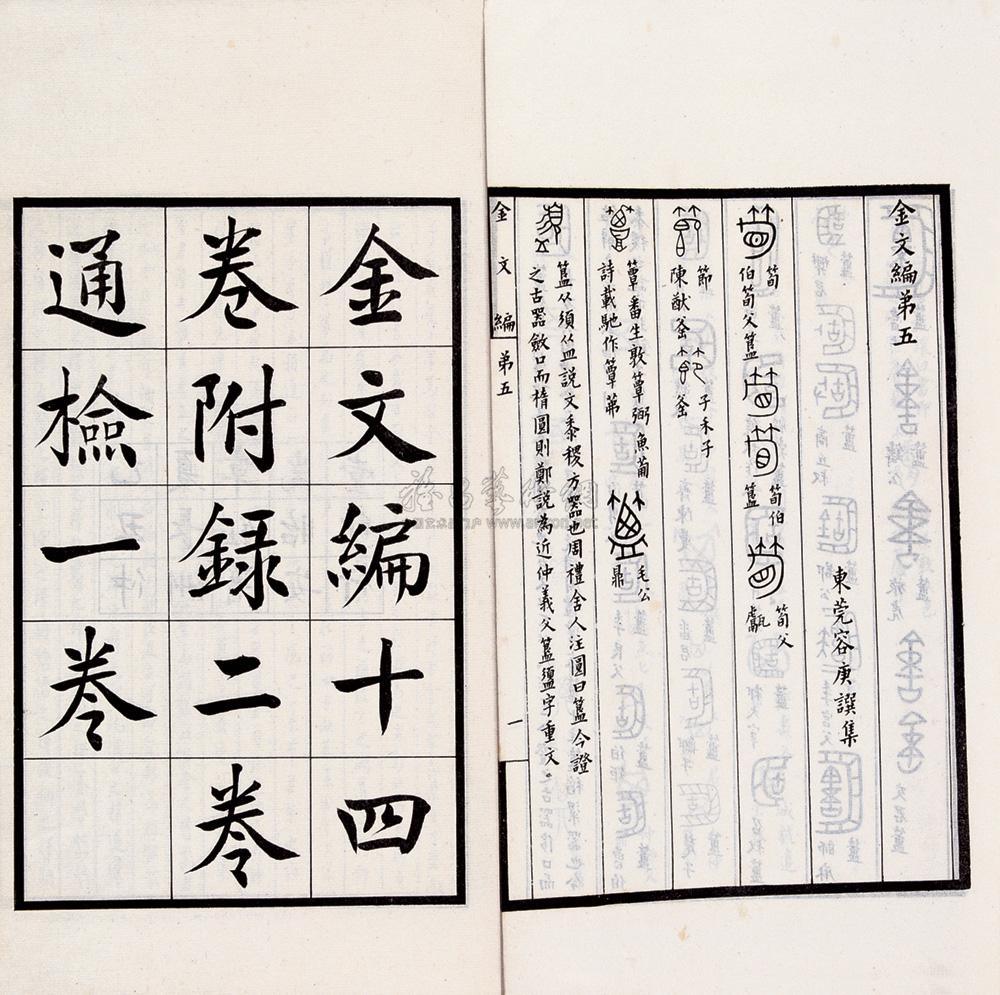 金文編十四
卷附録二卷
通檢一卷
金文編弟五
東莞容庚譔集
筍
伯筍父簋
筍伯
簋
筍父
甗
節
陳猷釜
子禾子
釜
簟番生敦簟弼魚葡
詩載馳作簟茀
毛公
鼎
簋从須从皿說文黍稷方器也周禮舍人注圓曰簋今證
之古器斂口而橢圓則鄭說為近仲義父簋盨字重文。
金文編 弟五
一